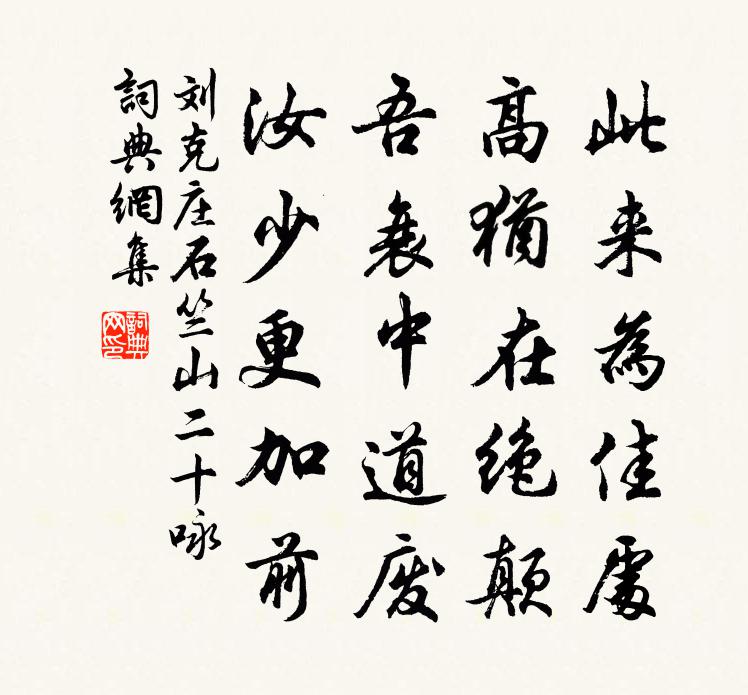 此来為佳處
高猶在绝颠
吾衰中道废
汝少更加前
刘克庄石竺山二十咏
詞典網集
詞典网印